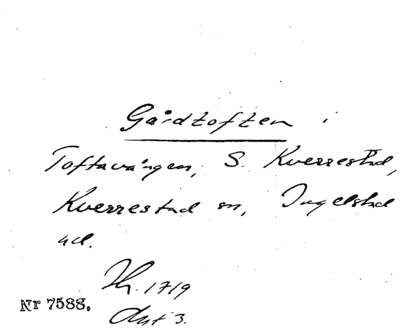 Gårdtoften i
Toftavången, S. Kverrestad,
Kverrestad sn, Ingelstad
hd.
Lh. 1719
Akt 3.
Nr 7588.